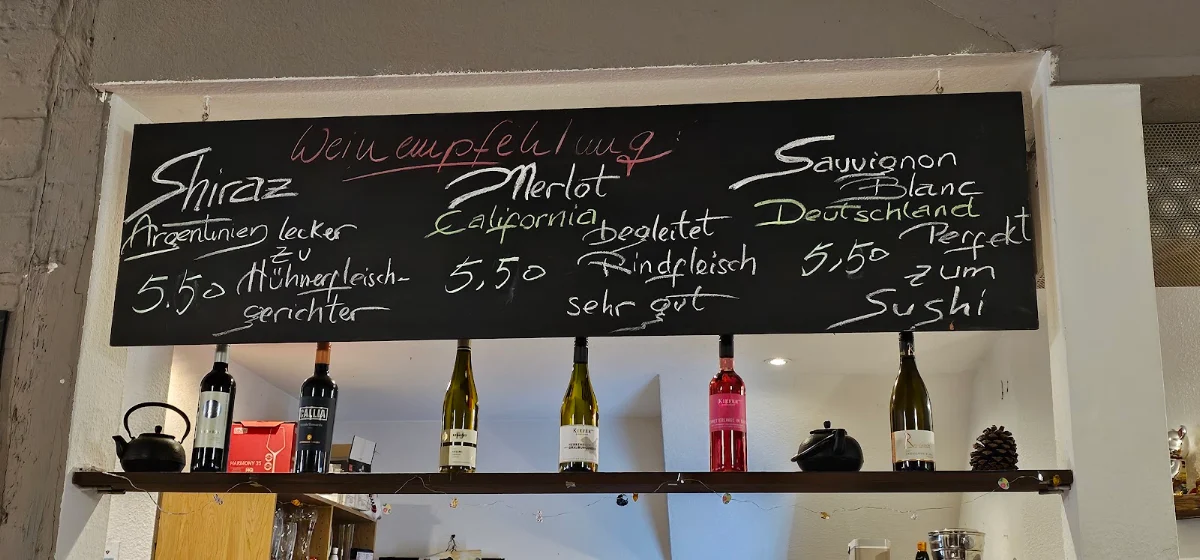 Weinempfehlung:
Shiraz
Argentinien lecker
zu
5.50 Hühnerfleisch-
gerichter
Merlot
California
begleitet
5,50 Rindfleisch
sehr gut
Sauvignon
Blanc
Deutschland
Perfekt
5,50 zum
Sushi
CALLIA
HARMONY 35